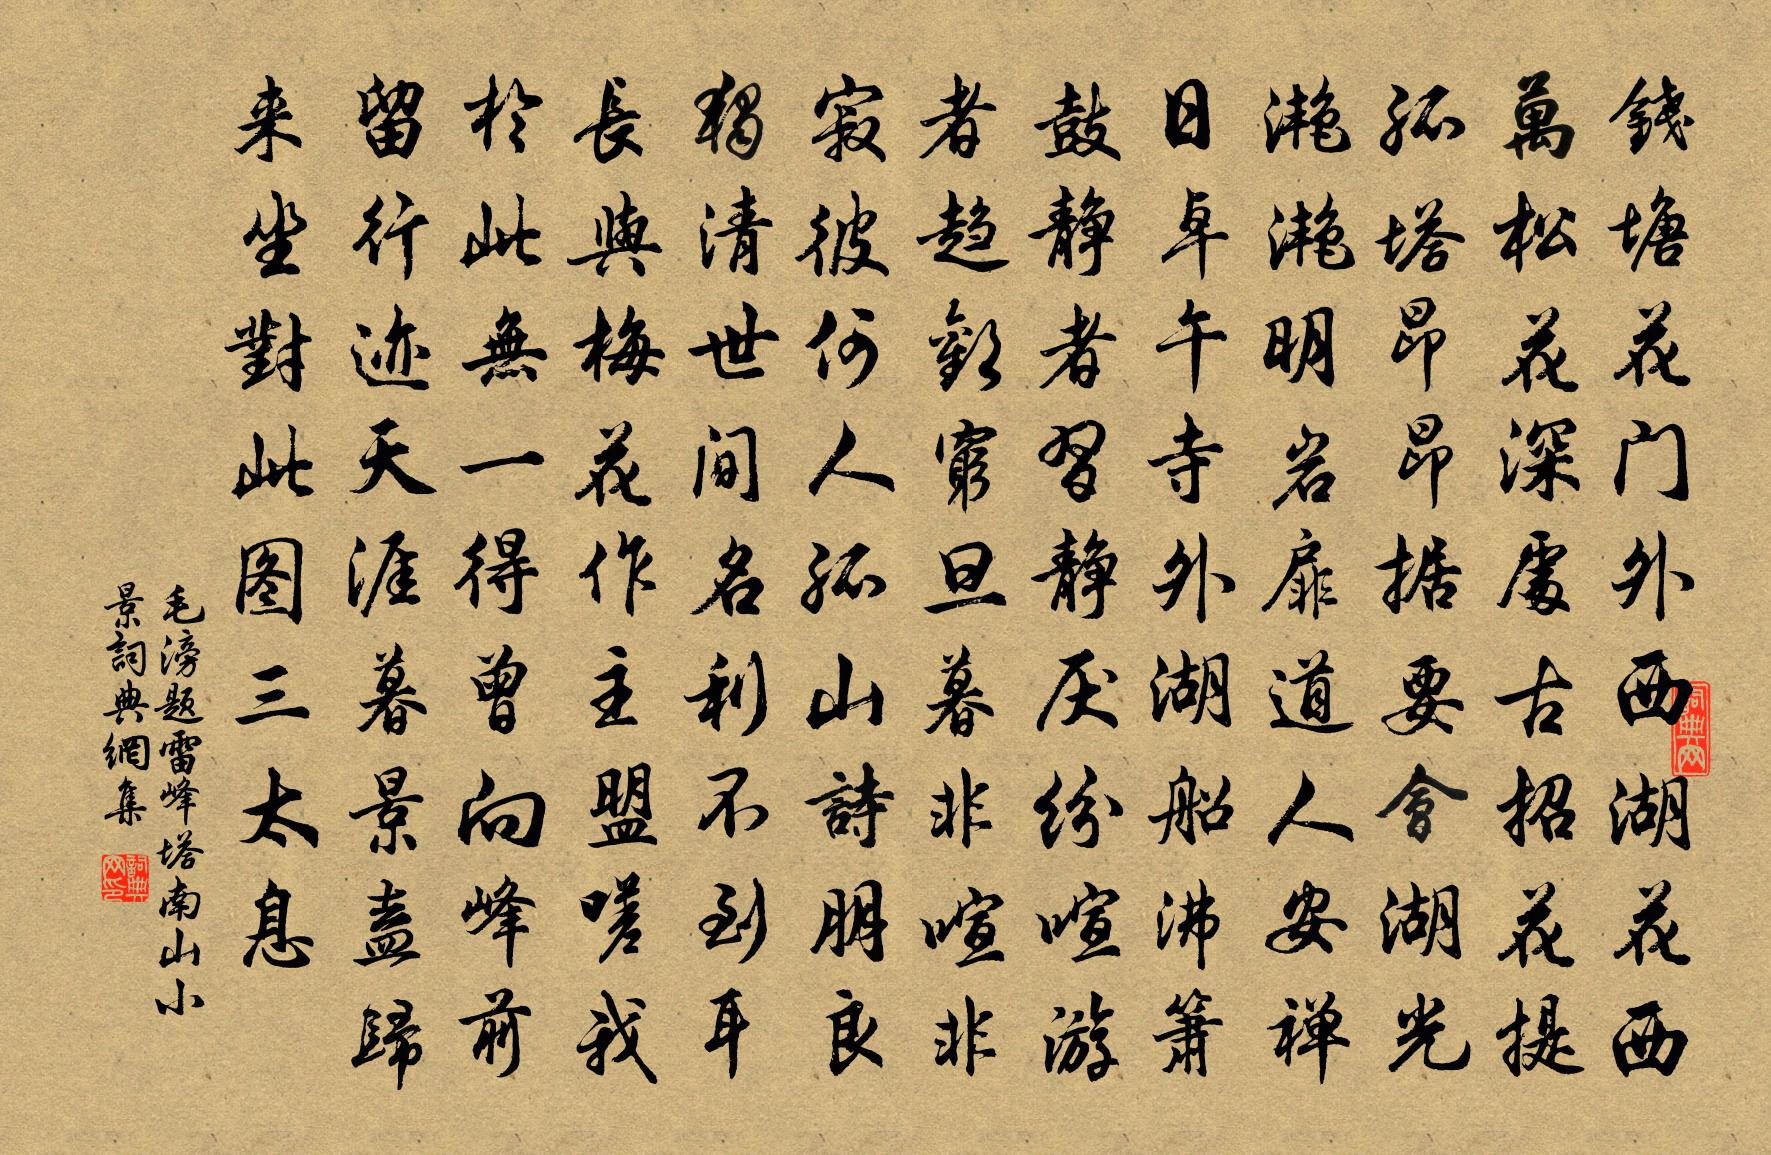 錢塘花门外西湖花西
萬松花深處古招花提
孤塔昂昂据要會湖光
灧灧明岩扉道人安禅
日卓午寺外湖船沸箫
鼓静者習静厌纷喧游
者趋歡窮旦暮非喧非
寂彼何人孤山詩朋良
獨清世间名利不到耳
長與梅花作主盟嗟我
於此無一得曾向峰前
留行迹天涯暮景盍歸
来坐對此图三太息
毛滂题雷峰塔南山小
景詞典網集
詞典网
詞典网印